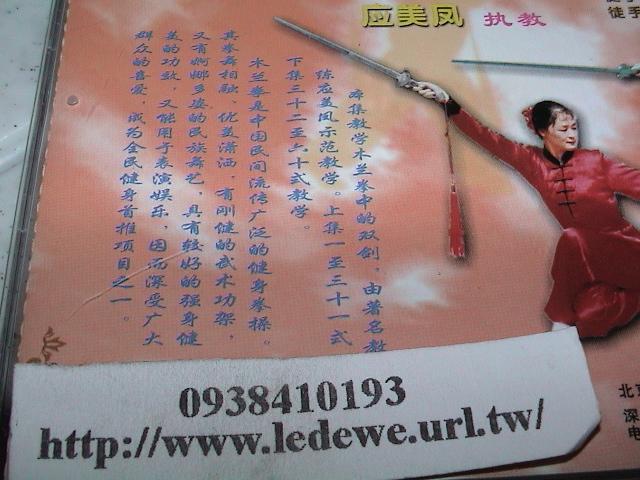 应美凤 执教
徒手
本集教学木兰拳中的双剑，由著名教
练应美凤示范教学。上集一至三十一式
下集三十二至六十式教学。
木兰拳是中国民间流传广泛的健身拳操。
其拳舞相融、优美潇洒，有刚健的武术功架，
又有婀娜多姿的民族舞艺，具有较好的强身健
美的功效，又能用于表演娱乐，因而深受广大
群众的喜爱，成为全民健身首推项目之一。
北京
深
电
0938410193
http://www.ledewe.url.tw/